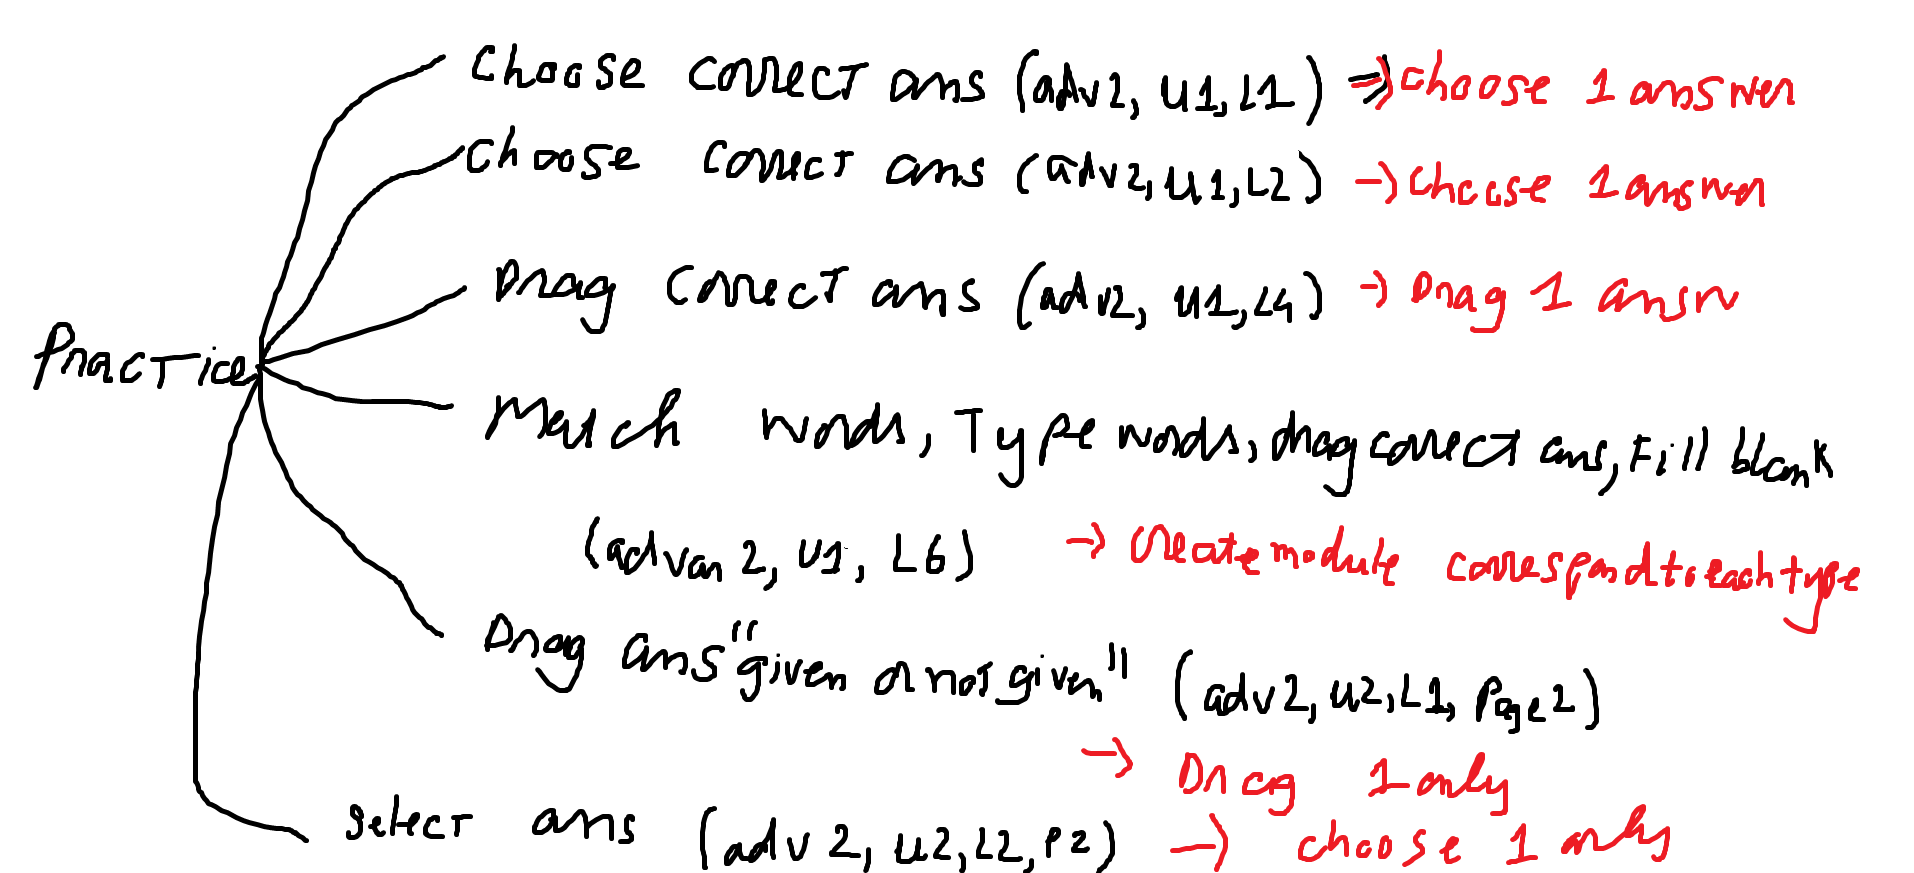 Choose correct ans (adv2, U1, L1) => choose 1 answer
Choose correct ans (adv2, U1, L2) -> choose 1 answer
Drag correct ans (adv2, U1, L4) -> Drag 1 answ
Practice
Match words, Type words, drag correct ans, Fill blank
(advan 2, U1, L6) -> create module correspond to each type
Drag ans "given or not given" (adv2, U2, L1, Page 2)
-> Drag 1 only
select ans (adv 2, U2, L2, P2) -> choose 1 only